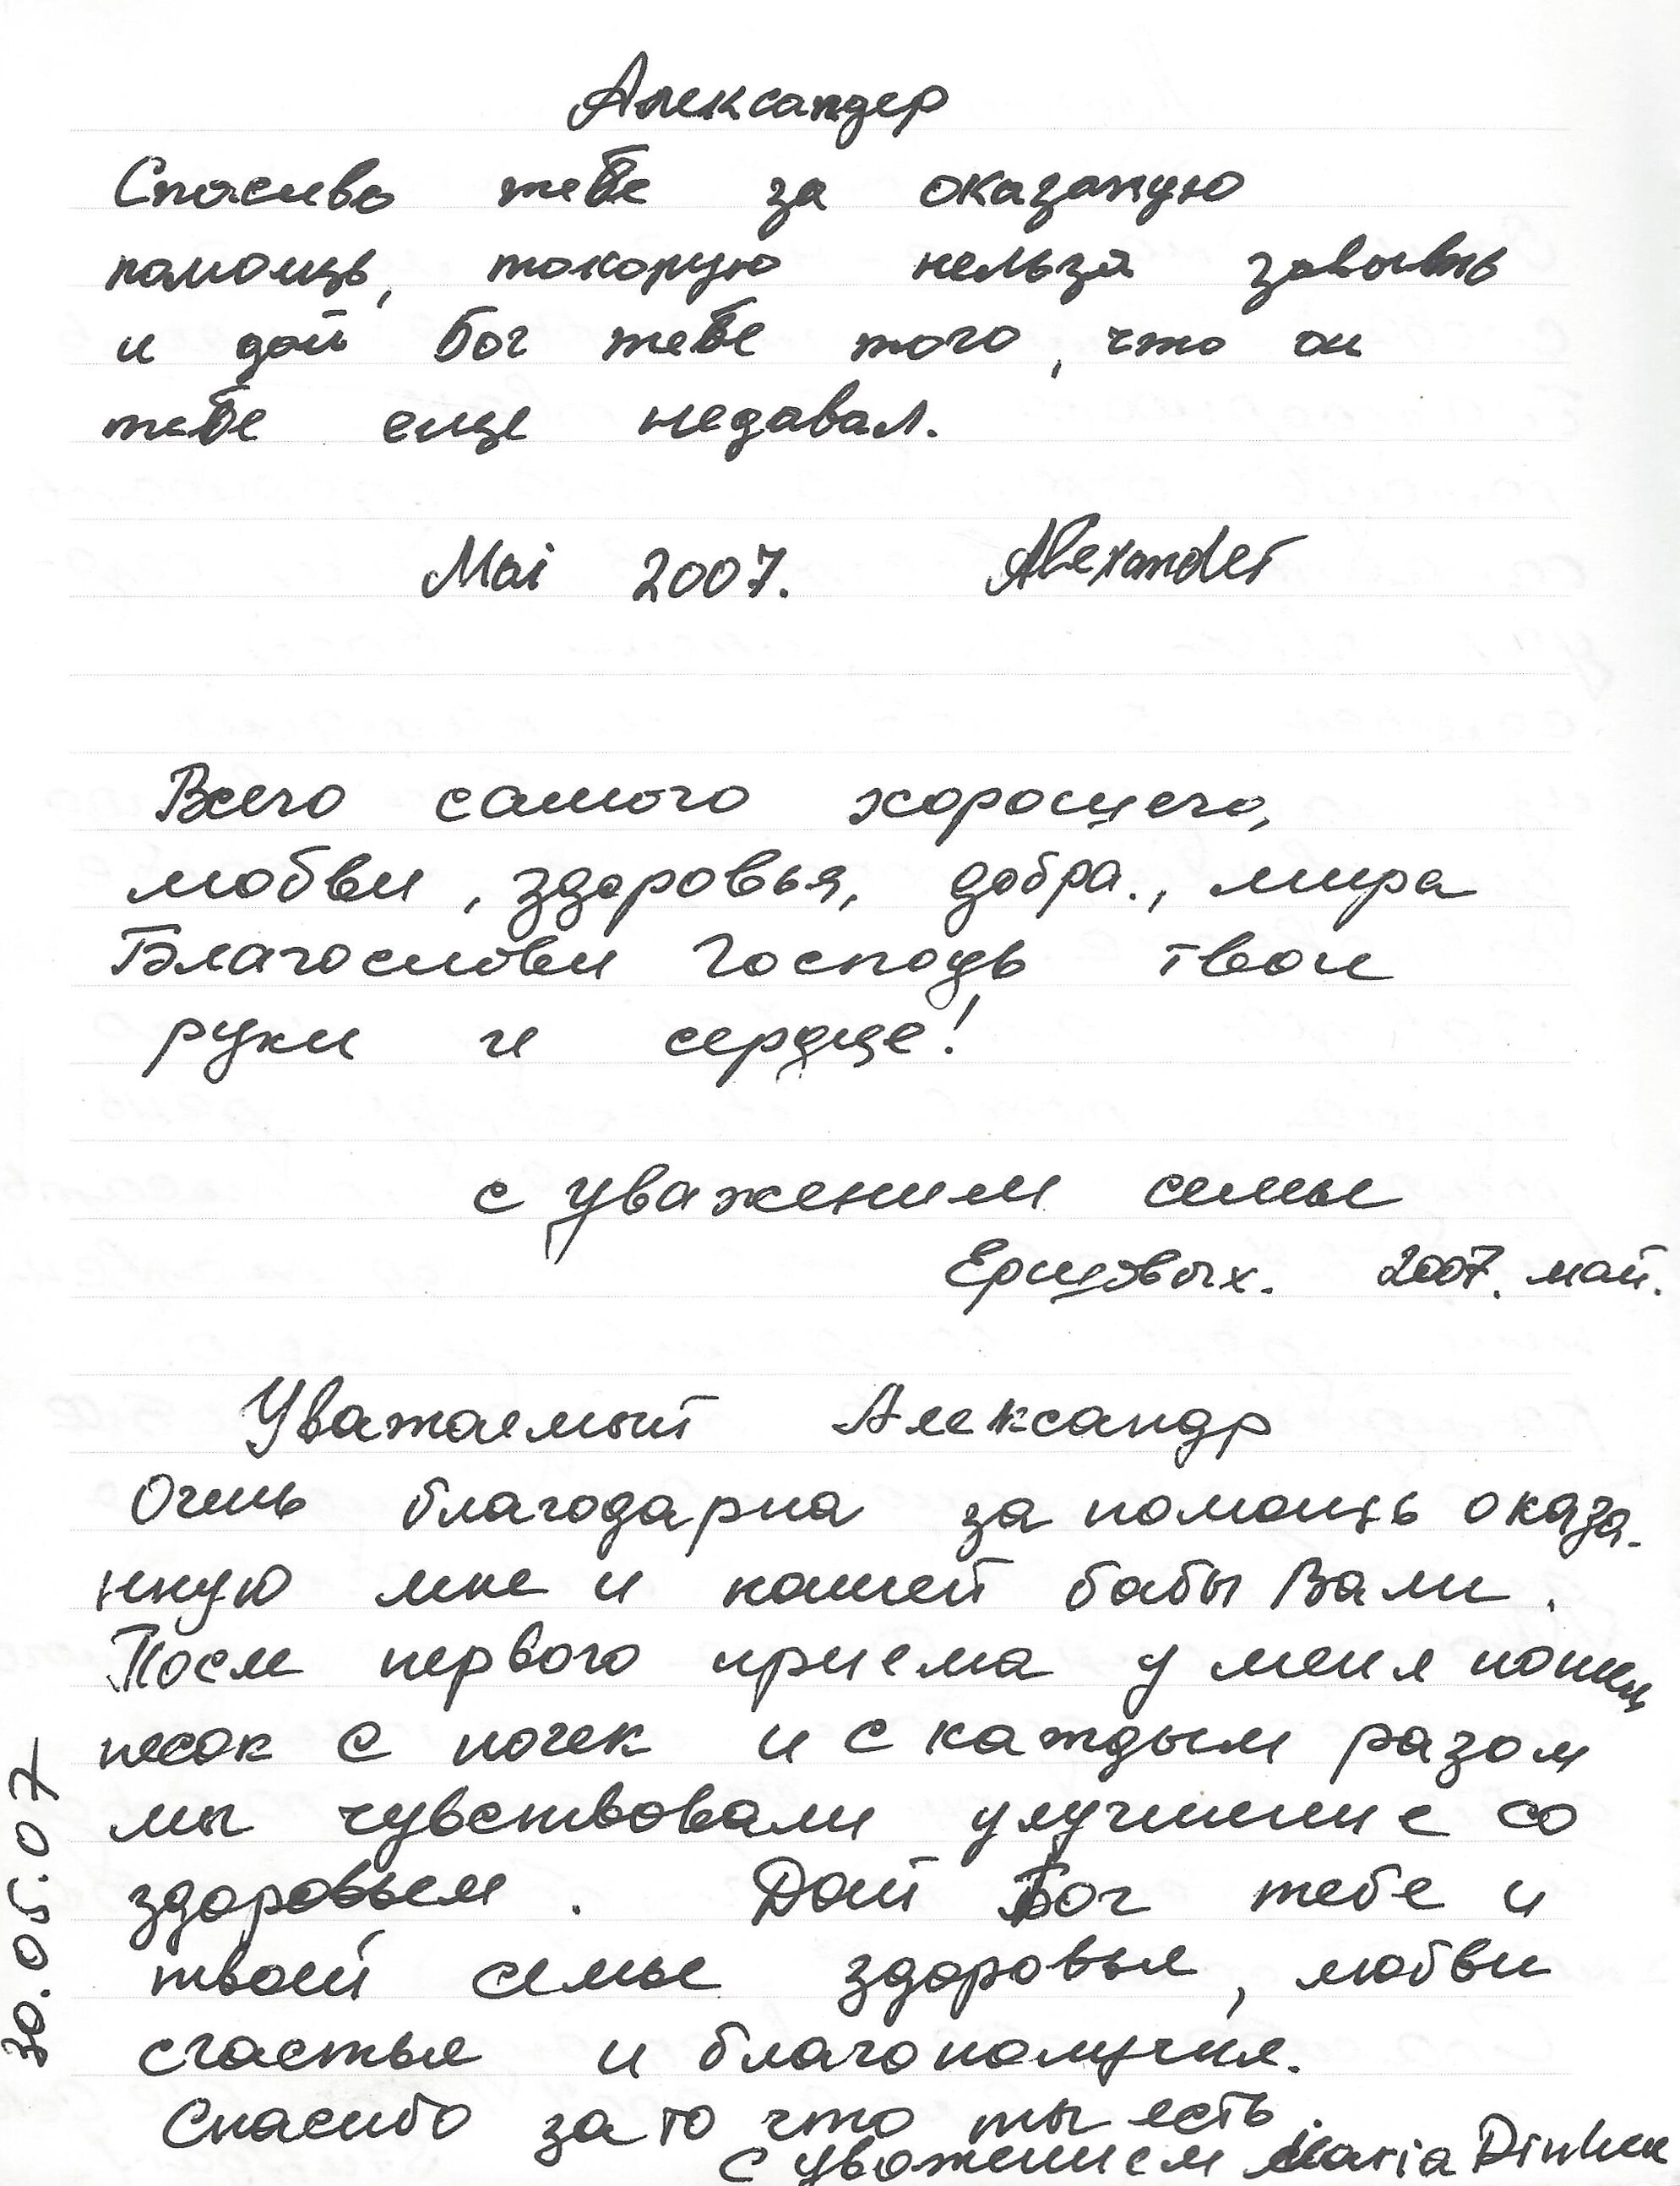 Александер
Спасиво тебе за оказаную
помощь, токорую нельзя завывть
и дай Бог тебе того, что он
тебе еще недавал.
Mai 2007. Alexander
Всего самого хорошего,
любви, здоровья, добра., мира
Благослови Господь твои
руки и сердце!
с уважением семье
Ершовых. 2007. май.
Уважаемый Александр
Очень благодарна за помощь оказа-
нную мне и нашей бабы Вали.
После первого приема у меня пошел
песок с почек и с каждым разом
мы чувствовали улучшение со
здоровьем. Дай Бог тебе и
твоей семье здоровья, любви
счастья и благополучия.
Спасибо за то что ты есть.
С уважением Maria
30.05.07